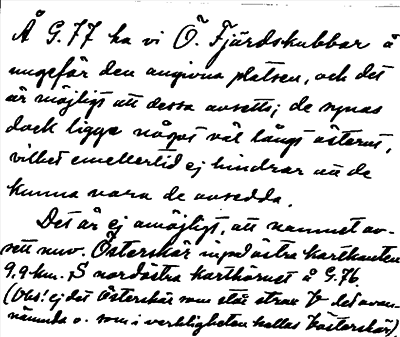 Å G.77 ha vi Ö. Fjärdskubbar å
ungefär den angivna platsen, och det
är möjligt att dessa avsetts; de synas
dock ligga något väl långt österut,
vilket emellertid ej hindrar att de
kunna vara de avsedda.
Det är ej omöjligt, att namnet av-
sett nuv. Österskär invid östra kartkanten
9,9 km. S nordöstra karthörnet å G.76.
(Obs! ej det Österskär som står strax V det ovan-
nämnda o. som i verkligheten kallas Västerskär).